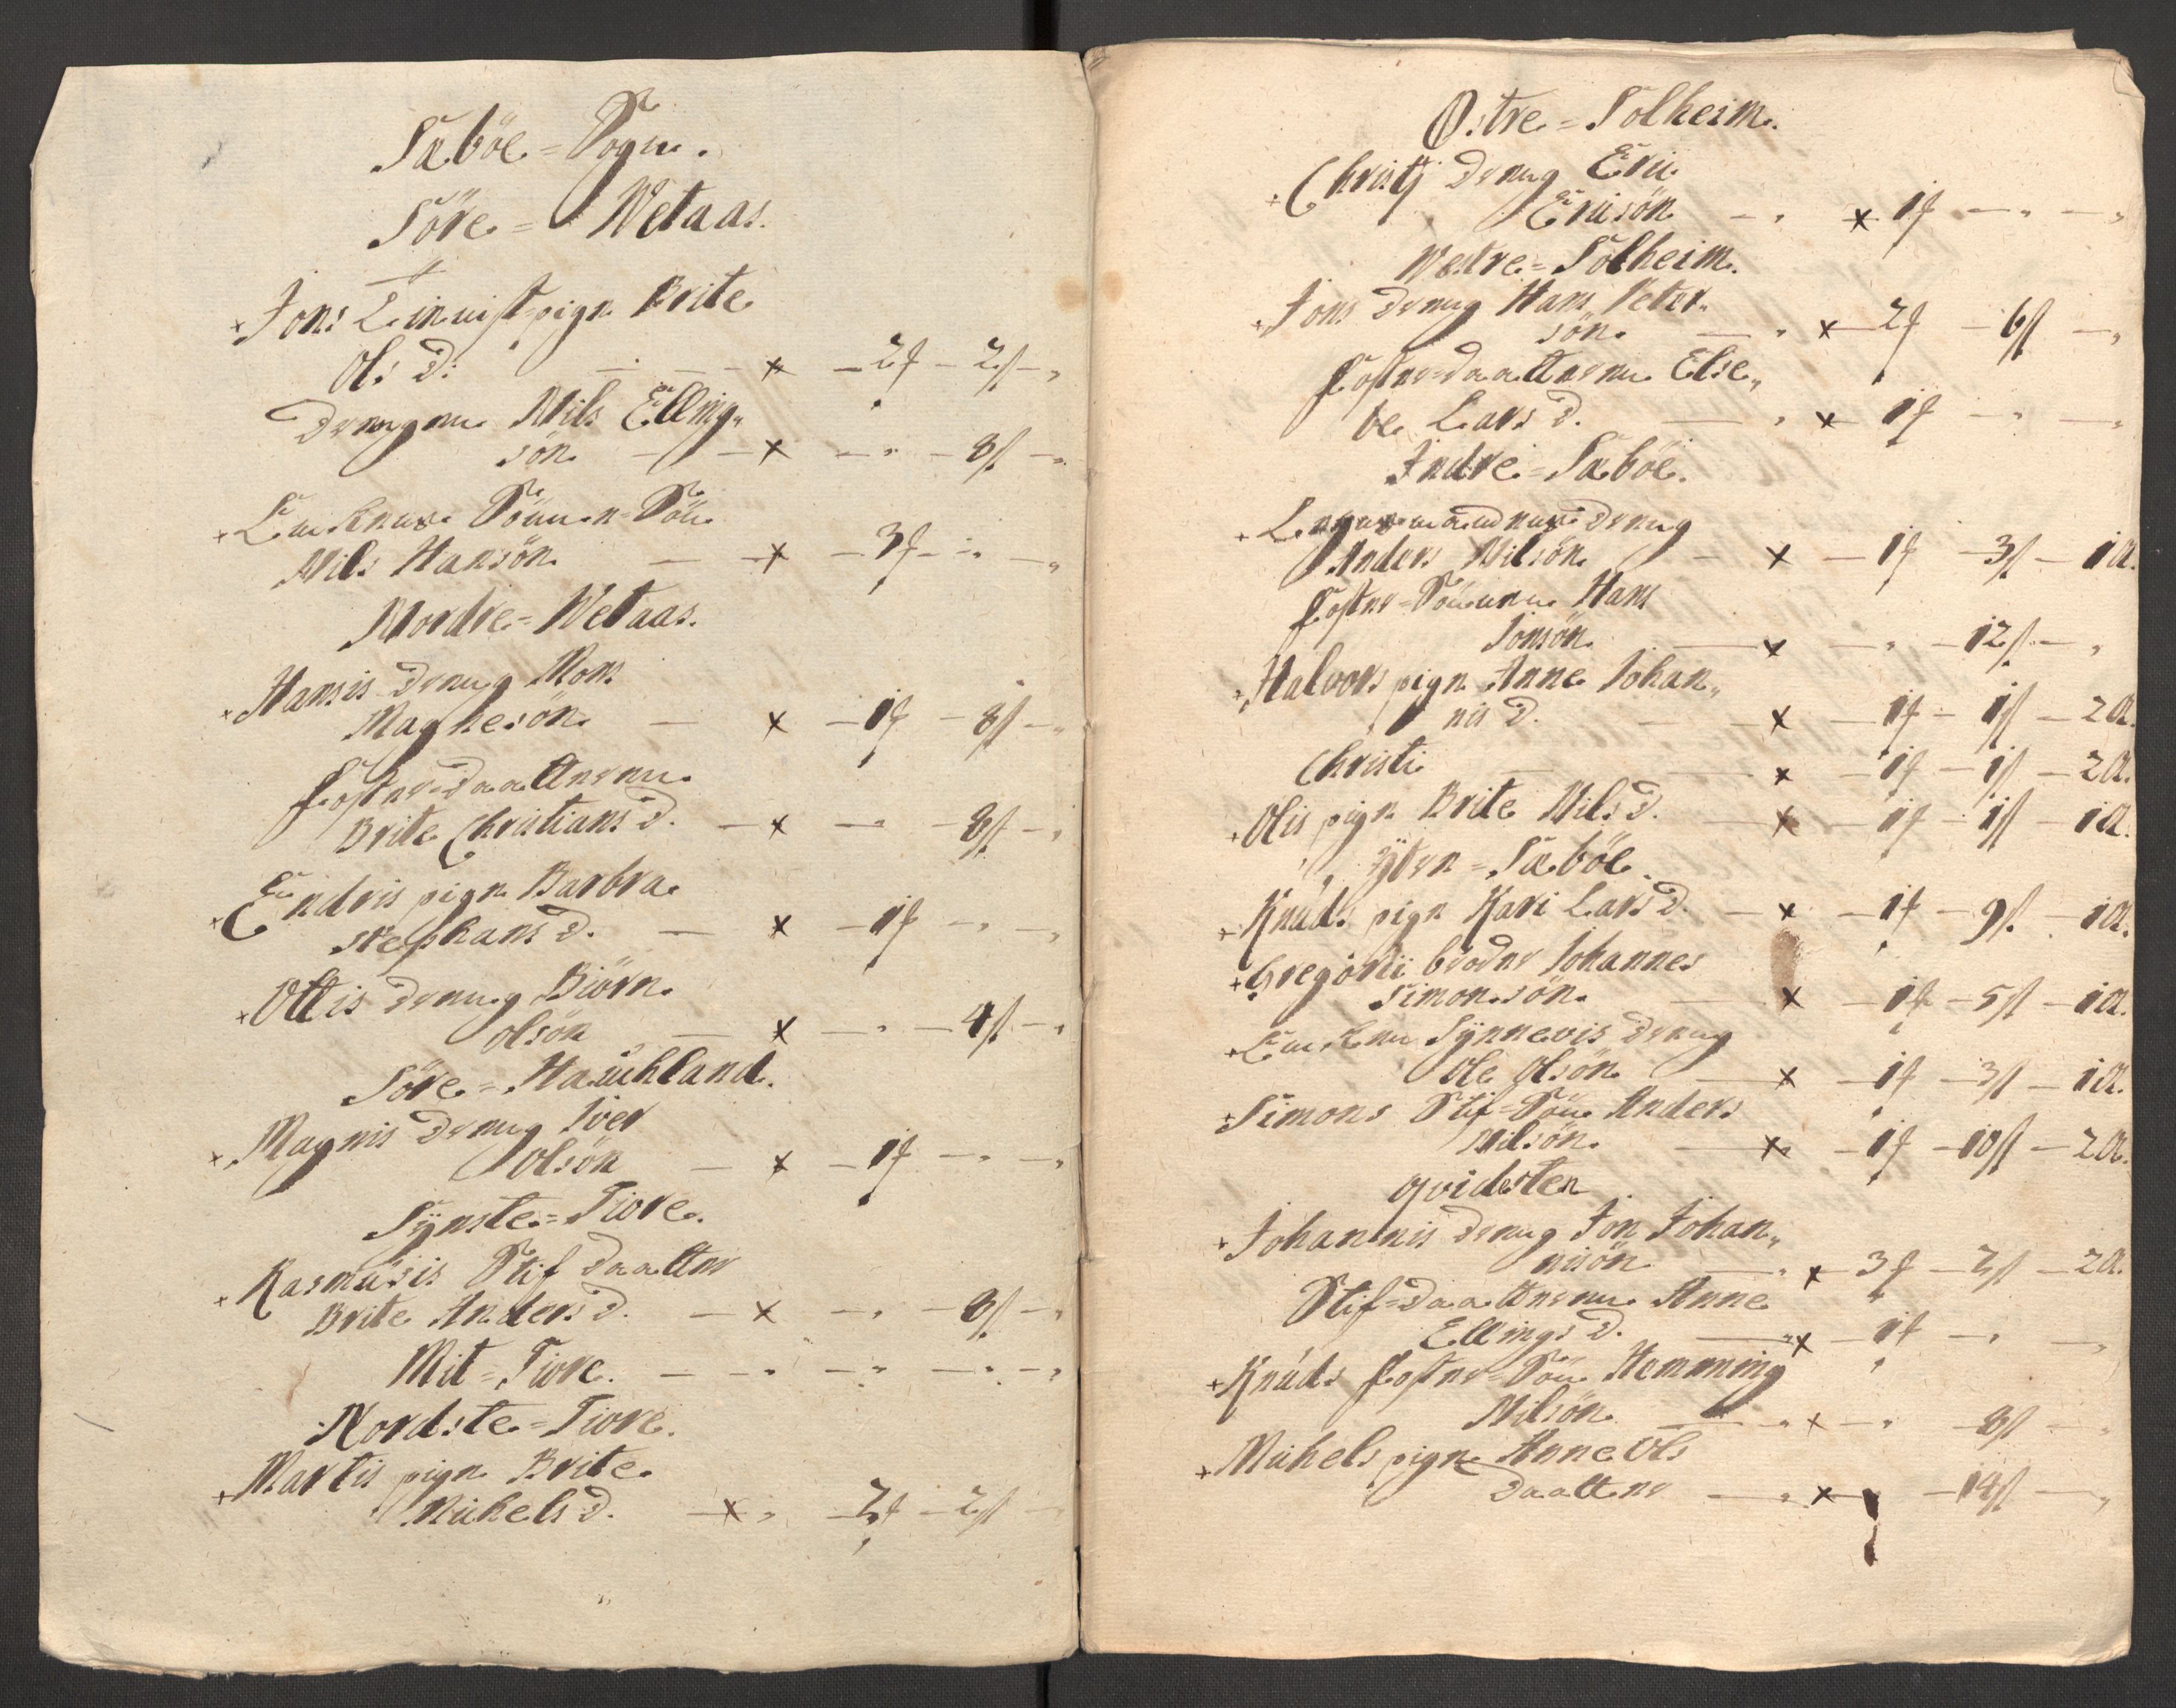 Sæböe = Sogn.
Söre = Wetaas.
+ Jons pign Brite
Ols D: - - x - 2f - 2ß - "
Drengen Nils Elling„
sön - - x - " - 8ß - "
+ Enkens Sönne-Sön
Nils Hansön - - x - 3f - " - "
Nordre = Wetaas.
+ Hansis Dreng Mons
Magnesön - x - 1f - 8ß - "
Foster-Daatteren
Brite Christians D. - x - " - 8ß - "
+ Endris pign Barbra
Stephans D. - x - 1f - " - "
+ Ottis Dreng Biörn
Olsön - x - " - 4ß - "
Söre = Hauchland.
+ Magnis Dreng Iver
Olsön - x - 1f - " - "
Synste = Fiore.
+ Rasmusis Stif Daatter
Brite Anders D. - x - " - 8ß - "
Mit = Fiore. - - " - " - " - "
Nordste = Fiore.
+ Martis pign Brite
Michels D. - x " - 2f - 2ß -
Östre = Solheim.
+ Christj Dreng Eric
Ericsön - " x 1f - " - "
Westre = Solheim.
+ Jons Dreng Hans Peter„
sön - " x - 2f - 6ß - "
Foster-Daatteren Else„
be Lars D. - " x - 1f - " - "
Indre = Sæböe.
+ Dreng
Anders Nilsön - x - 1f - 3ß - 1a.
Foster-Sönnen Hans
Jonsön - x - " - 12ß - "
+ Halvors pign Anne Johan„
nis D. - - x - 1f - 1ß - 2a.
Christi - - x - 1f - 1ß - 2a.
+ Olis pign Brite Nils D. - x - 1f - 1ß - 1a.
Ytern = Sæböe.
+ Knuds pign Kari Lars D. - x - 1f - 9ß - 1a.
+ Gregorii broder Johannes
Simonsön - x - 1f - 5ß - 1a.
+ Enken Synnevis Dreng
Ole Olsön - x - 1f - 3ß - 1a.
+ Simons Stif-Sön Anders
Nilsön - x - 1f - 10ß - 2a.
Qvidsten
+ Johannis Dreng Jon Johan„
nisön - " x - 3f - 2ß - 2a.
Stif-Daatteren Anne
Ellings D. - " x - 1f - " - "
+ Knuds Foster-Sön Hemming
Nilsön - " x - " - 8ß - "
+ Michels pign Anne Ols
Daatter - " x - - 14ß - "